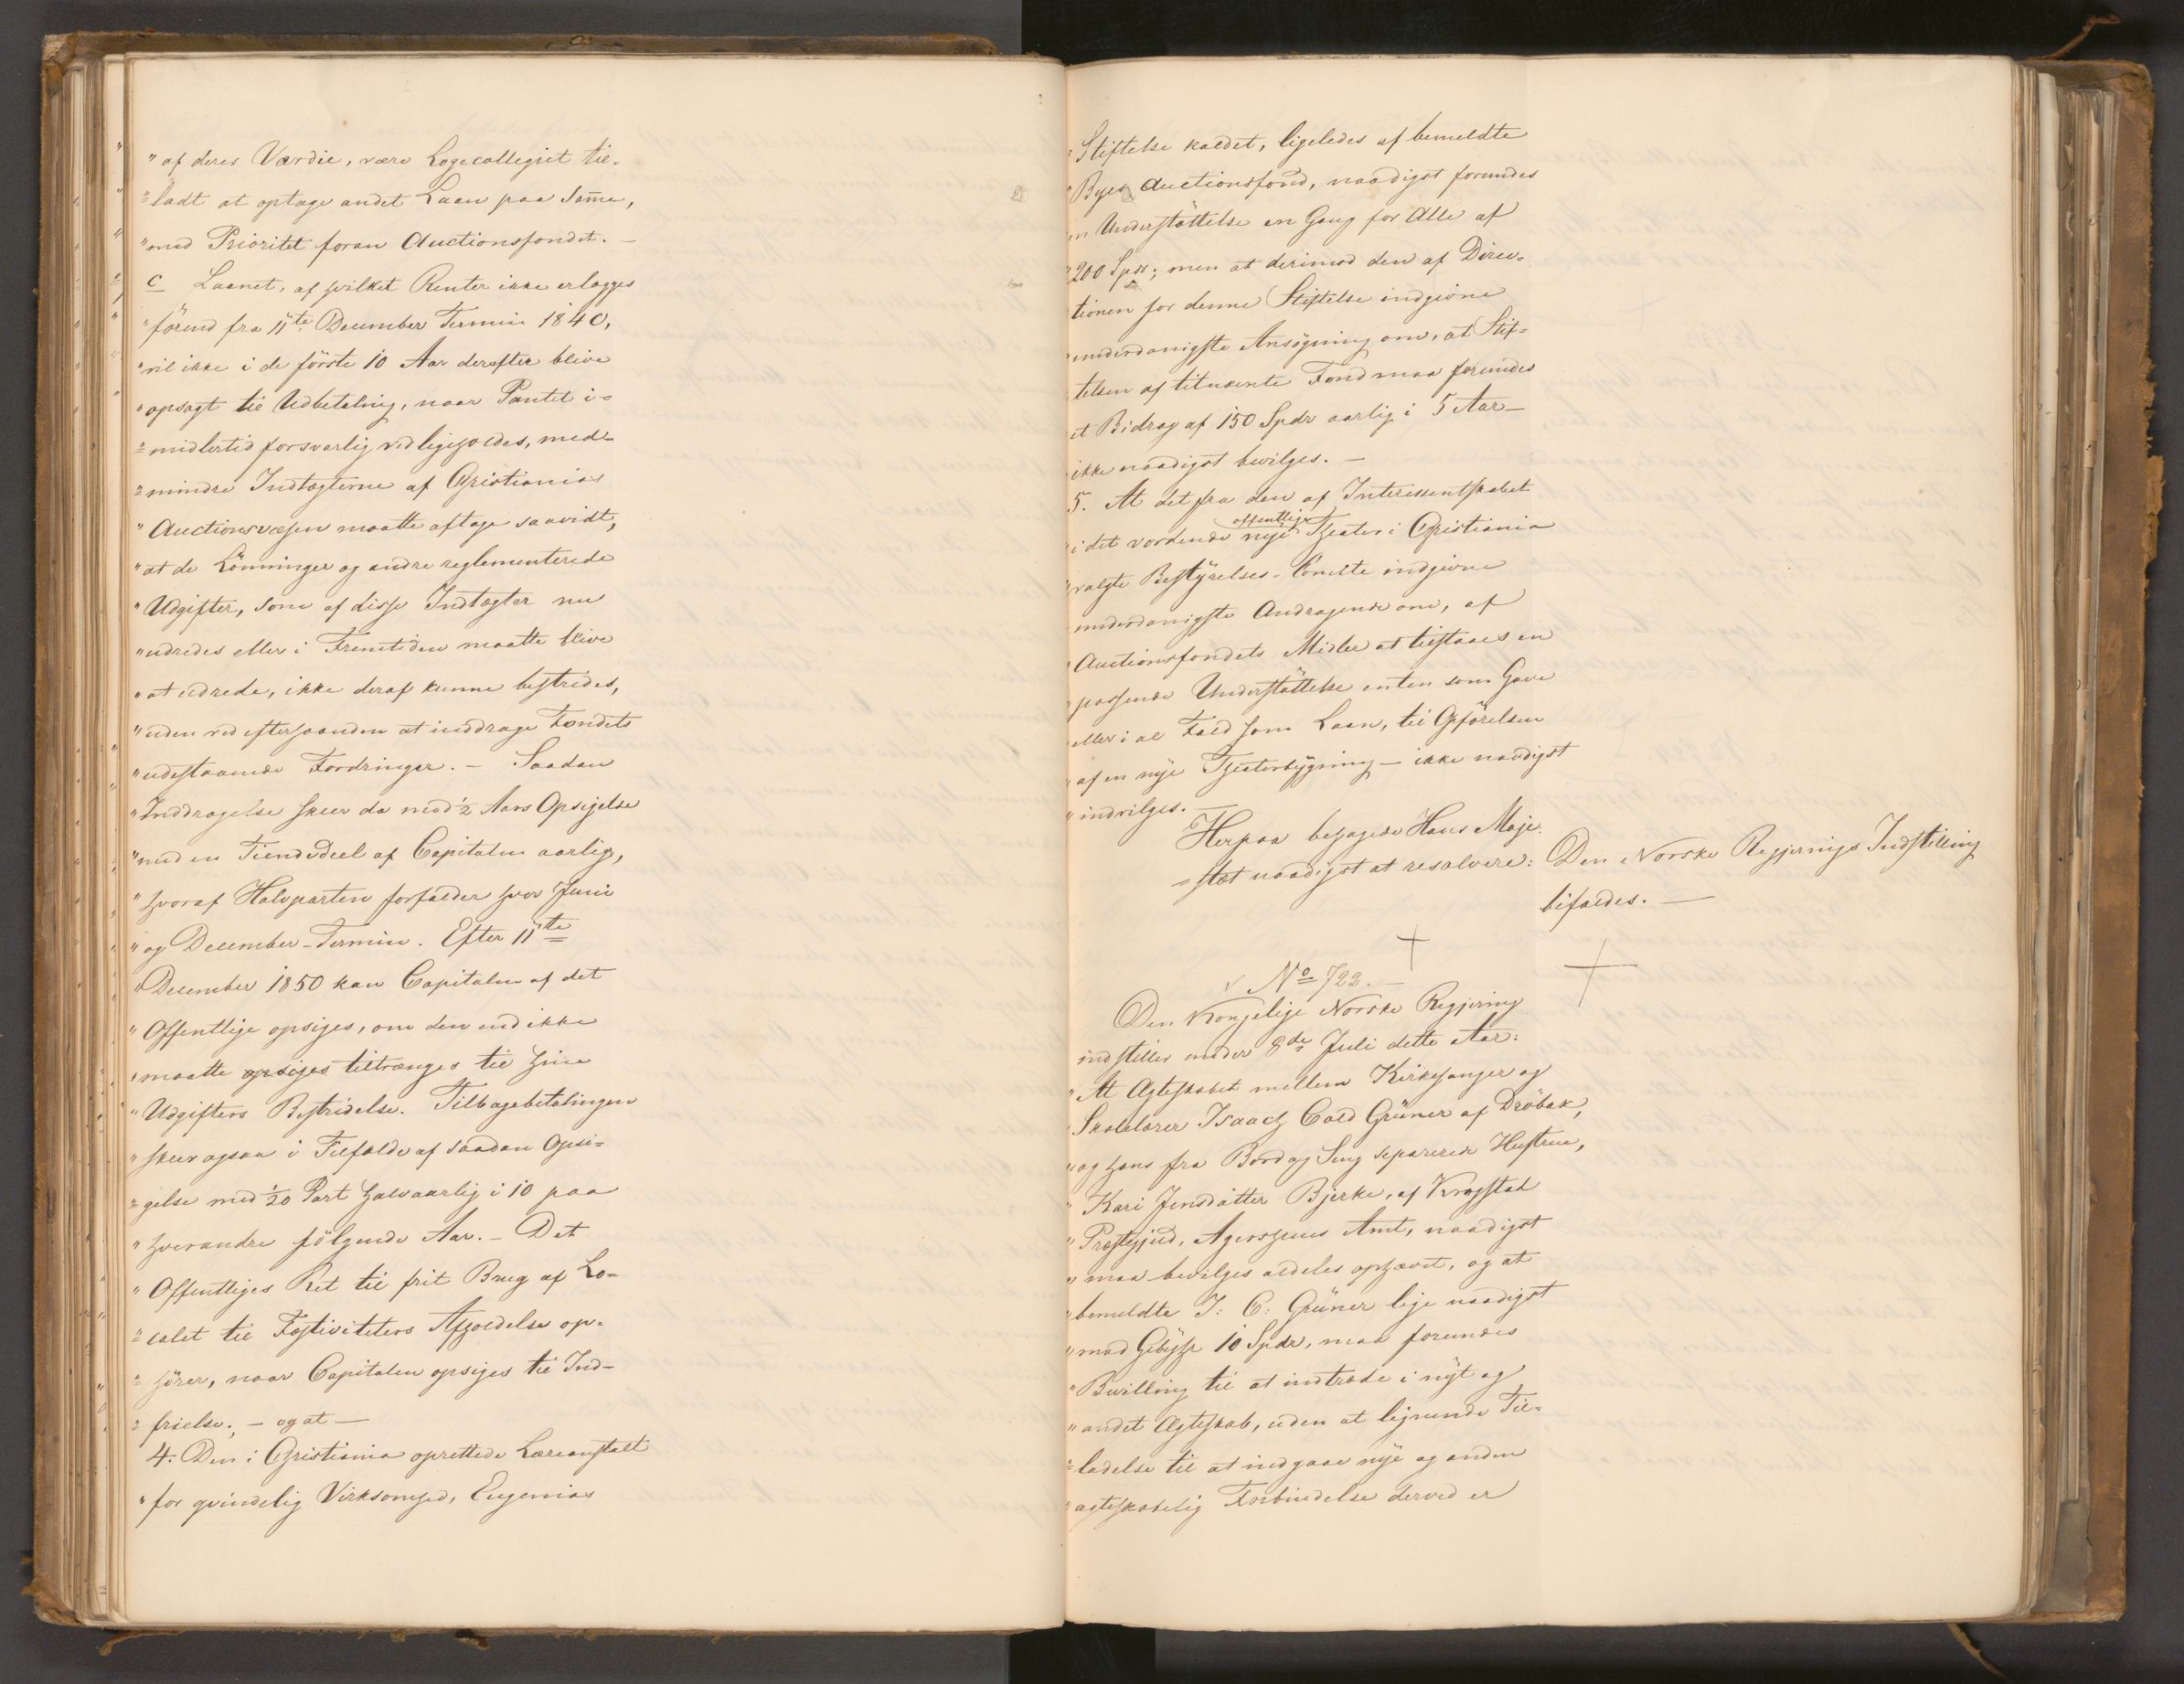 "af deres Værdie, være Logecollegiet til-
=ladt at optage andet Laan paa Samme,
"med Prioritet foran Auctionsfondet. —
c Laanet, af hvilket Renter ikke erlægges
"förend fra 11te December Termin 1840,
"vil ikke i de förste 10 Aar derefter blive
"opsagt til Udbetaling, naar Pantet i=
=midlertid forsvarlig vedligeholdes, med=
=mindre Indtægterne af Christianias
"Auctionsvæsen maatte aftage saavidt,
"at de Lönninger og andre reglementerede
"Udgifter, som af disse Indtægter nu
"udredes eller i Fremtiden maatte blive
"at udrede, ikke deraf kunne bestrides,
"uden ved efterhaanden at inddrage Fondets
"udestaaende Fordringer. — Saadan
"Inddragelse skeer da med ½ Aars Opsigelse
"med en Tiendedeel af Capitalen aarlig,
"hvoraf Halvparten forfalder hver Juni
"og December-Termin. Efter 11te
"December 1850 kan Capitalen af det
"Offentlige opsiges, om den end ikke
"maatte opsiges tiltrænges til hine
"Udgifters Bestridelse. Tilbagebetalingen
"skeer ogsaa i Tilfælde af saadan Opsi=
=gelse med 1/20 Part halvaarlig i 10 paa
"hverandre fölgende Aar. — Det
"Offentliges Ret til frit Brug af Lo=
=calet til Festiviteters Afholdelse op=
=hörer, naar Capitalen opsiges til Ind=
=frielse; — og at —
4. Den i Christiania oprettede Læreanstalt
"for qvindelig Virksomhed, Eugenias
"Stiftelse kaldet, ligeledes af bemeldte
"Byes Auctionsfond, naadigst forundes
en Understöttelse en Gang for Alle af
"200 Spdr; men at derimod den af Direc=
tionen for denne Stiftelse indgivne
"underdanigste Ansögning om, at Stif=
telsen af titnævnte Fond maa forundes
et Bidrag af 150 Spdr aarlig i 5 Aar —
ikke naadigst bevilges. —
5. At det fra den af Interessentskabet
offentlige
"i det vordende nye Theater i Christiania
"valgte Bestyrelses-Comite indgivne
underdanigste Andragende om, af
"Auctionsfondets Midler at tilstaaes en
"passende Understöttelse enten som Gave
"eller i al Fald som Laan, til Opförelsen
"af en nye Theaterbygning — ikke naadigst
"indvilges. —
Herpaa behagede Hans Maje=
=stæt naadigst at resolvere: Den Norske Regjerings Indstilling
bifaldes. —
No 722. —
Den Kongelige Norske Regjering
indstiller under 8de Juli dette Aar:
"At Ægteskabet mellem Kirkesanger og
"Skolelærer Isaach Cold Grüner af Dröbak,
"og hans fra Bord og Seng separerede Hustrue,
"Kari Jensdatter Bjerke, af Krogstad
"Præstegjeld, Agershuus Amt, naadigst
"maa bevilges aldeles ophævet, og at
"bemeldte I: C: Grüner lige naadigst
"mod Gebyhr 10 Spdr, maa forundes
"Bevilling til at indtræde i nyt og
"andet Ægteskab, uden at lignende Til=
=ladelse til at indgaae nye og anden
"ægteskabelig Forbindelse derved er